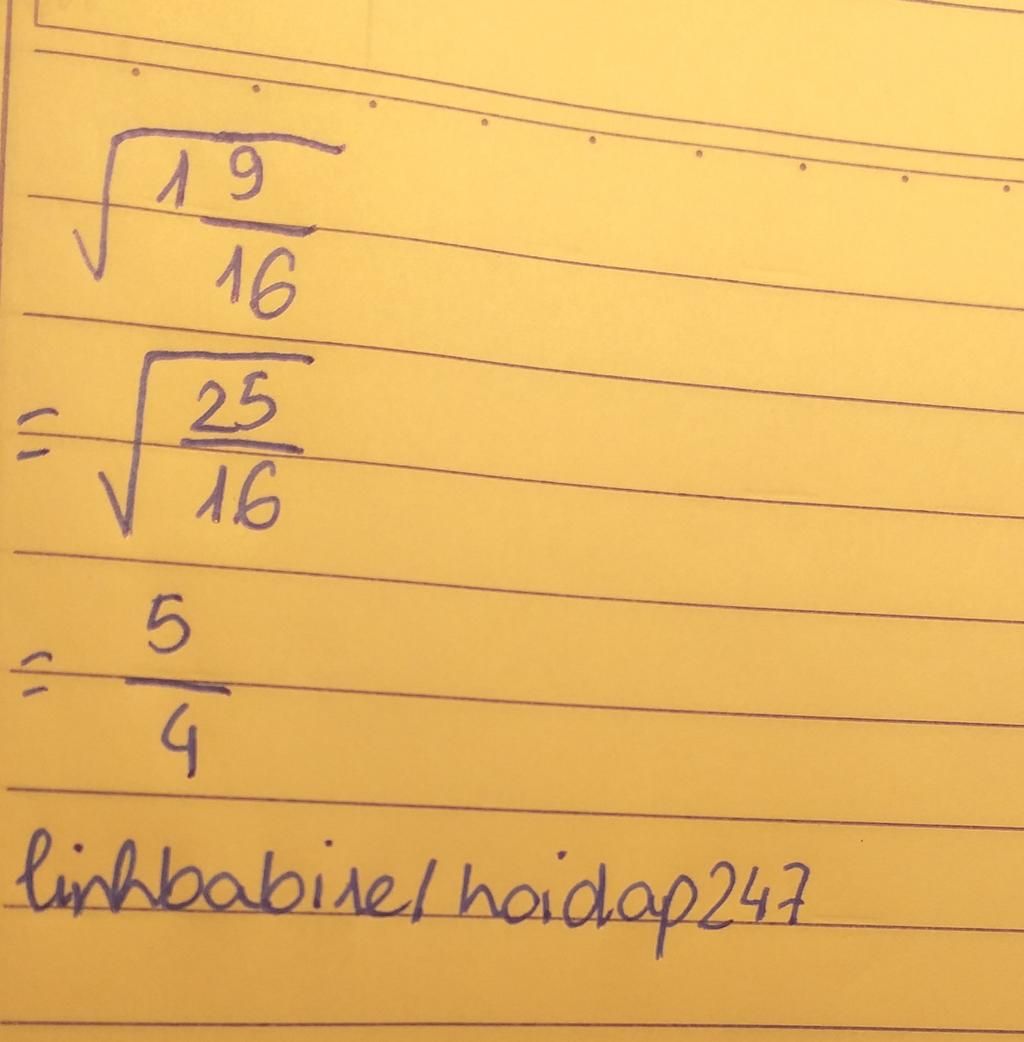 √1 9/16
= √25/16
= 5/4
linhbabire/hoidap247